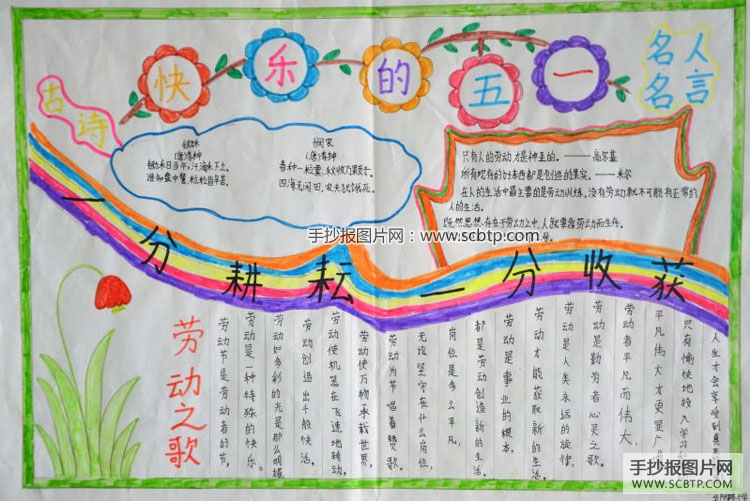 快乐的五一
古诗
名人
名言
锄禾
(唐)李绅
锄禾日当午,汗滴禾下土。
谁知盘中餐,粒粒皆辛苦。
悯农
(唐)李绅
春种一粒粟,秋收万颗子。
四海无闲田,农夫犹饿死。
只有人的劳动才是神圣的。——高尔基
所有现有的好东西都是创造的果实。——米尔
在人的生活中最主要的是劳动训练。没有劳动就不可能有正常的
人的生活。
既然思想存在于劳动之中,人就要靠劳动而生存。
手抄报图片网:www.scbtp.com
一分耕耘一分收获
劳动之歌
劳动节是劳动者的节,
劳动是一种特殊的快乐。
劳动如多彩的光是那么明耀,
劳动创造出千般快活。
劳动使机器在飞速地转动,
劳动使万物承载世界,
劳动为节唱着赞歌,
无论坚守在什么岗位,
岗位是多么平凡,
都是劳动创造新的生活。
劳动是事业的根本,
劳动才能获取新的生活。
劳动是人类永远的旋律,
劳动是勤劳者心灵之歌。
劳动者平凡而伟大,
平凡伟大才更显广
只有愉快地投入学习
人生才会享受到真
手抄报图片网
WWW.SCBTP.COM